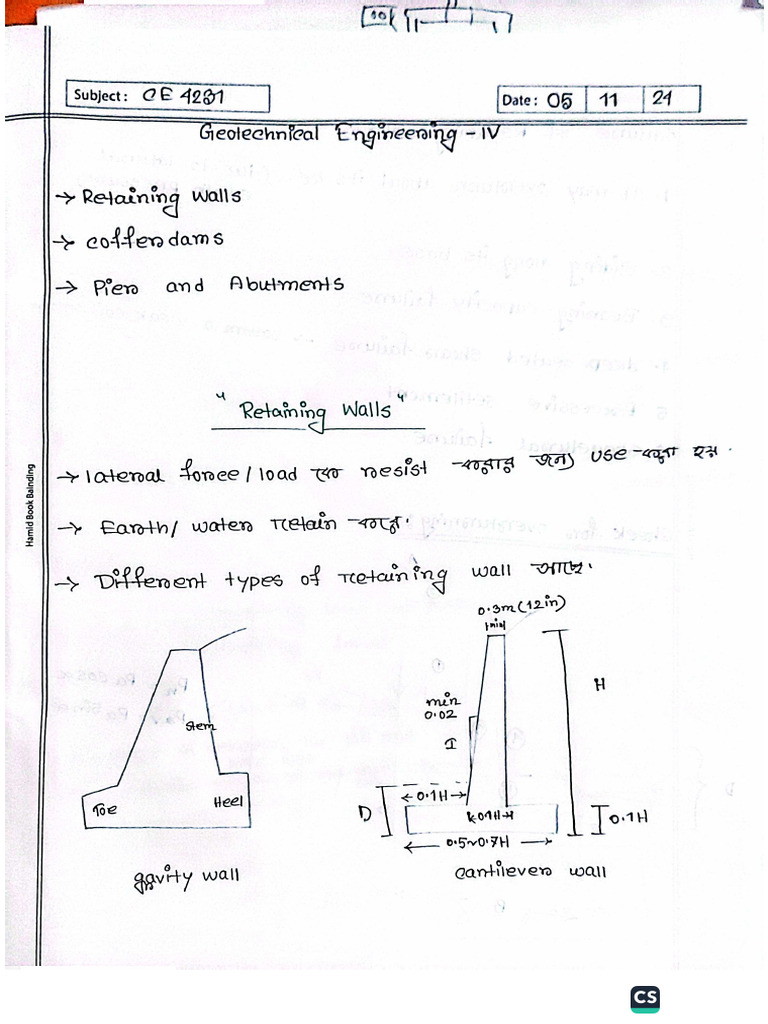 Subject: CE 4231
Date: 05 11 24
Geotechnical Engineering - IV
→ Retaining Walls
→ Cofferdams
→ Pier and Abutments
"Retaining Walls"
→ lateral force / load কে resist করার জন্য use করা হয়.
→ Earth / water retain করে.
→ Different types of retaining wall আছে.
0.3m (12in)
min
H
min
0.02
1
Stem
Toe
Heel
D
0.1H
0.1H
0.1H
0.5~0.7H
gravity wall
cantilever wall
Hamid Book Bainding
CS